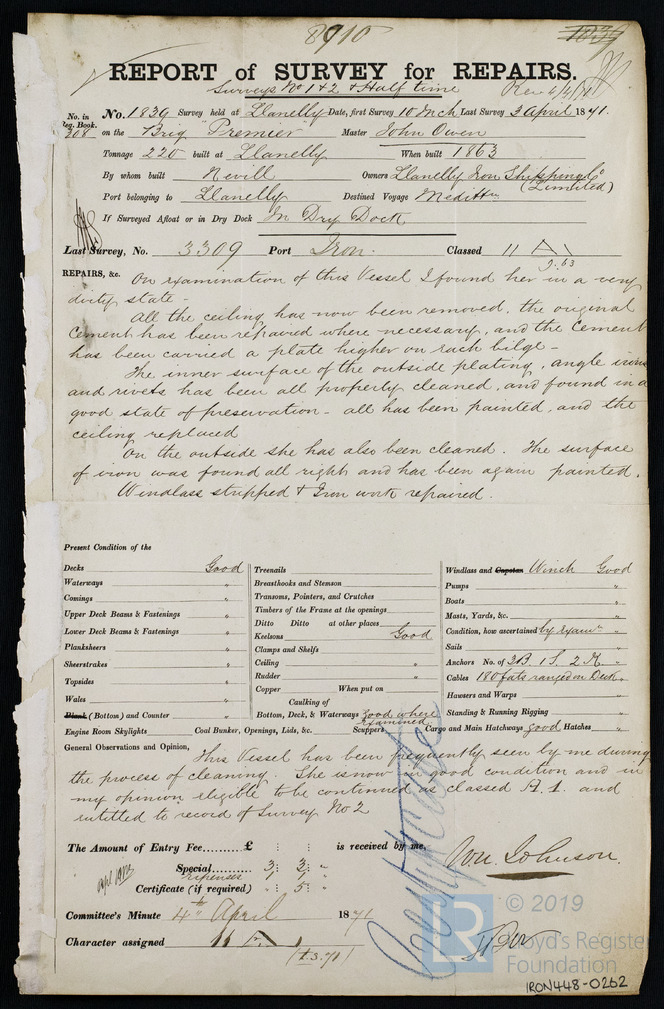 8910
REPORT of SURVEY for REPAIRS.
Surveys No 1 & 2 & Half time Rec 4/4/71
No. in Reg. Book. 308
No. 1839 Survey held at Llanelly Date, first Survey 10 Mch Last Survey 3 April 1871.
on the Brig "Premier" Master John Owen
Tonnage 220 built at Llanelly When built 1863
By whom built Nevill Owners Llanelly Iron Shipping Co (Limited)
Port belonging to Llanelly Destined Voyage Medittn
If Surveyed Afloat or in Dry Dock In Dry Dock
Last Survey, No. 3309 Port Iron. Classed 11 A1
9.63
REPAIRS, &c. On examination of this Vessel I found her in a very
dirty state -
All the ceiling has now been removed, the original
Cement has been repaired where necessary, and the Cement
has been carried a plate higher on each bilge -
The inner surface of the outside plating, angle irons
and rivets has been all properly cleaned, and found in a
good state of preservation - all has been painted, and the
ceiling replaced
On the outside she has also been cleaned. The surface
of iron was found all right and has been again painted.
Windlass stripped & Iron work repaired.
Present Condition of the
Decks Good
Waterways "
Comings "
Upper Deck Beams & Fastenings "
Lower Deck Beams & Fastenings "
Planksheers "
Sheerstrakes "
Topsides "
Wales "
Blank (Bottom) and Counter "
Engine Room Skylights
Treenails
Breasthooks and Stemson
Transoms, Pointers, and Crutches
Timbers of the Frame at the openings
Ditto Ditto at other places
Keelsons Good
Clamps and Shelfs
Ceiling "
Rudder "
Copper When put on
Caulking of
Bottom, Deck, & Waterways good where examined
Coal Bunker, Openings, Lids, &c. Scuppers
Windlass and Capstan Winch Good
Pumps "
Boats "
Masts, Yards, &c. "
Condition, how ascertained by exam "
Sails "
Anchors No. of 3 B. 1 S. 2 K. "
Cables 180 fats ranged on Deck "
Hawsers and Warps "
Standing & Running Rigging "
Cargo and Main Hatchways good Hatches "
General Observations and Opinion, This Vessel has been frequently seen by me during
the process of cleaning. She is now in good condition and in
my opinion eligible to be continued as classed A.1. and
entitled to record of Survey No 2
The Amount of Entry Fee......£ : : is received by me,
Special....... 3 : 3 : "
expenses 1
Certificate (if required) " : 5 : "
Wm. Johnson.
Committee's Minute 4th April 1871
Character assigned A 1
Certificate
© 2019
LR Lloyd's Register
Foundation
IRON448-0262